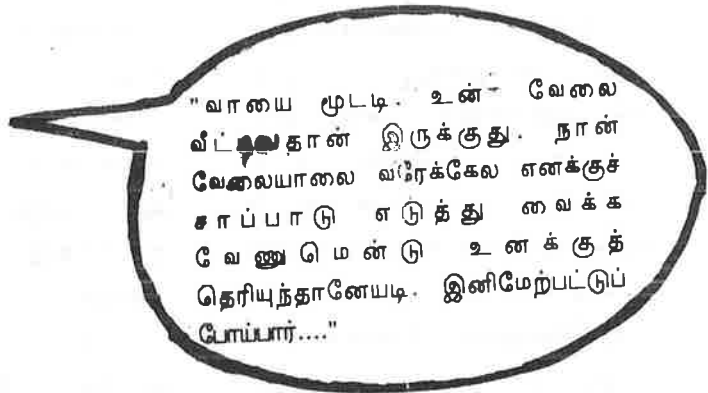 "வாயை மூடடி. உன் வேலை
இருக்குது. நான்
வேலையாலை வரேக்கேல எனக்குச்
சாப்பாடு எடுத்து வைக்க
வேணுமென்டு உனக்குத்
தெரியுந்தானேயடி. இனிமேற்பட்டுப்
போய்பார்...."